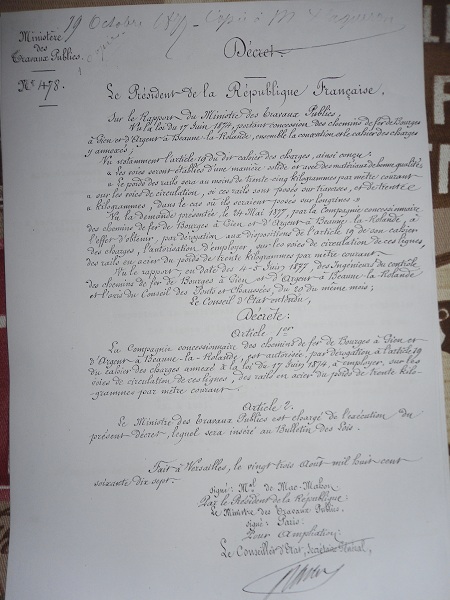 19 Octobre 1877. Copie à M
Ministère
des
Travaux Publics
Décret.
N° 478.
Le Président de la République Française,
Sur le Rapport du Ministre des Travaux Publics;
Vu la loi du 17 Juin 1874, portant concession des chemins de fer de Bourges
à Gien et d'Argent à Beaune-la-Rolande, ensemble la convention et le cahier des charges
y annexés;
Vu notamment l'article 19 du dit cahier des charges, ainsi conçu:
« les voies seront établies d'une manière solide et avec des matériaux de bonne qualité
« le poids des rails sera au moins de trente cinq kilogrammes par mètre courant
« sur les voies de circulation, si ces rails sont posés sur traverses, et de trente
« kilogrammes, dans le cas où ils seraient posés sur longrines. »
Vu la demande présentée, le 24 Mai 1877, par la Compagnie concessionnaire
des chemins de fer de Bourges à Gien et d'Argent à Beaune-la-Rolande, à
l'effet d'obtenir, par dérogation aux dispositions de l'article 19 de son cahier
des charges, l'autorisation d'employer, sur les voies de circulation de ces lignes,
des rails en acier du poids de trente kilogrammes par mètre courant.
Vu le rapport, en date des 4-5 Juin 1877, des Ingénieurs du contrôle
des chemins de fer de Bourges à Gien et d'Argent à Beaune-la-Rolande
et l'avis du Conseil des Ponts et Chaussées, du 20 du même mois;
Le Conseil d'Etat entendu,
Décrète:
Article 1er
La Compagnie concessionnaire des chemins de fer de Bourges à Gien et
d'Argent à Beaune-la-Rolande, est autorisée, par dérogation à l'article 19
du cahier des charges annexé à la loi du 17 Juin 1874, à employer, sur les
voies de circulation de ces lignes, des rails en acier du poids de trente kilo-
grammes par mètre courant.
Article 2.
Le Ministre des Travaux Publics est chargé de l'exécution du
présent décret, lequel sera inséré au Bulletin des lois.
Fait à Versailles, le vingt trois Août mil huit cent
soixante dix sept.
signé: Mal de Mac-Mahon
Par le Président de la République:
Le Ministre des Travaux Publics.
signé: Paris.
Pour ampliation:
Le Conseiller d'Etat, Secrétaire Général,